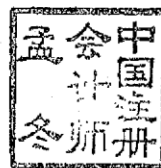 中国注册
会计师
孟冬